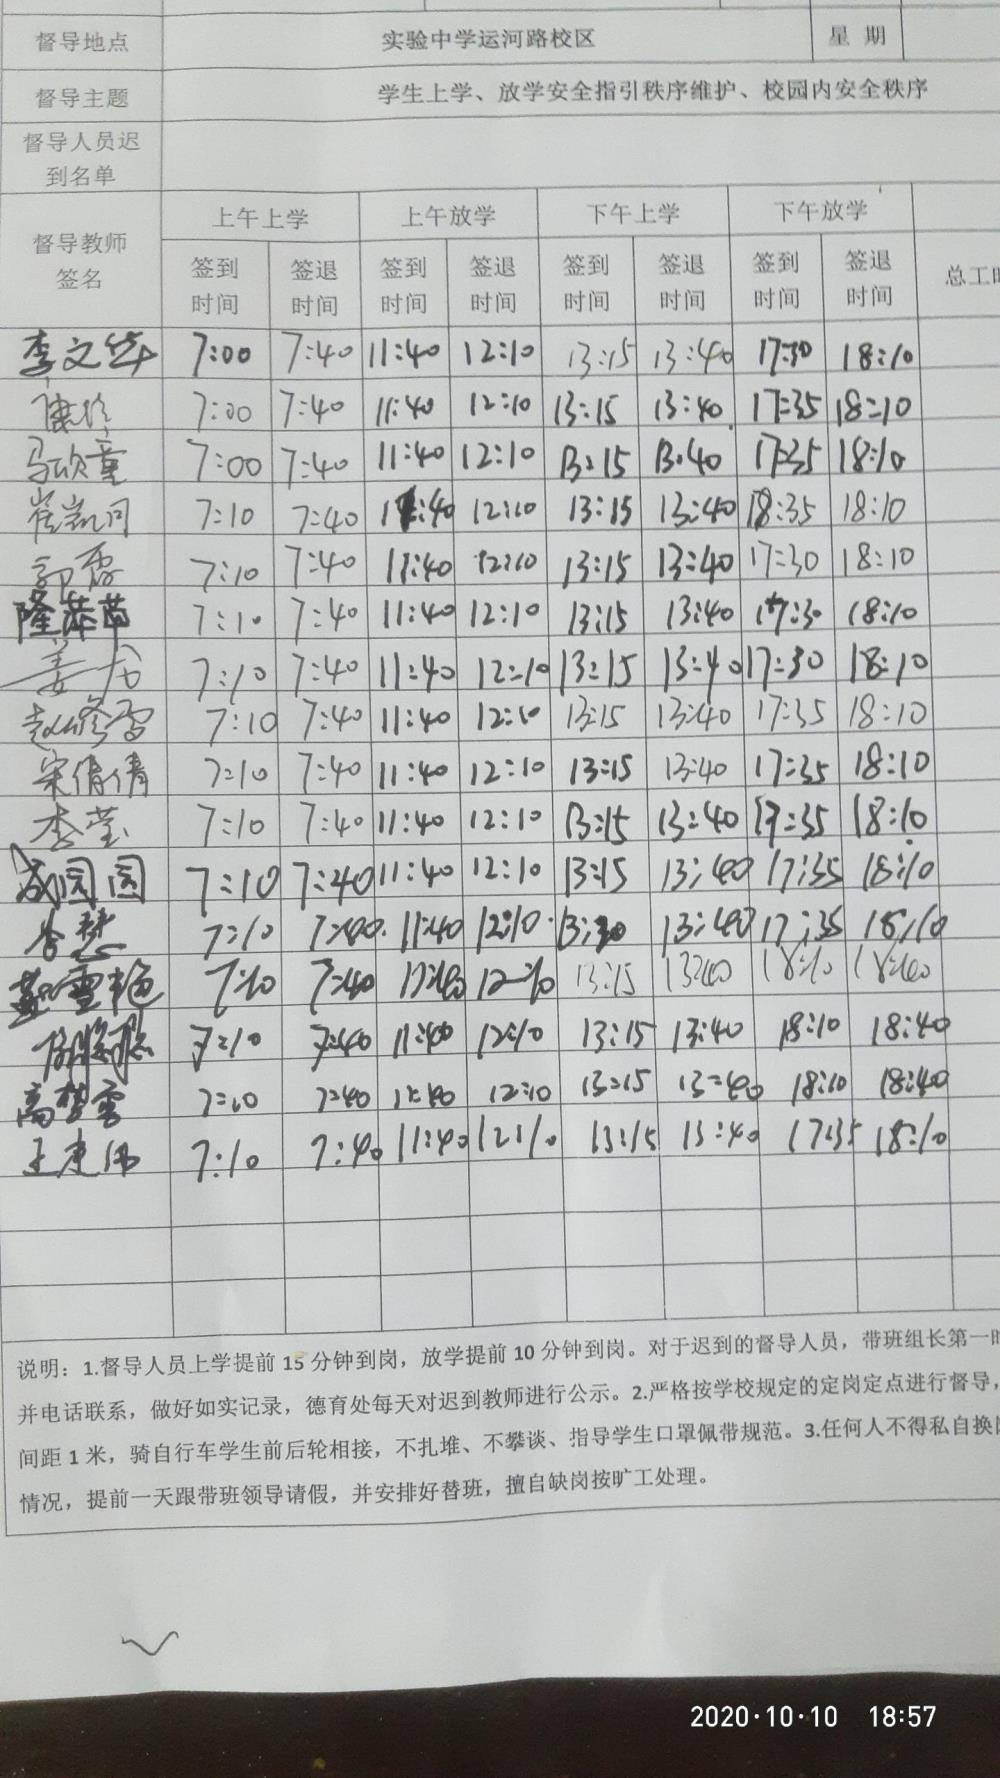 督导地点 实验中学运河路校区 星 期
督导主题 学生上学、放学安全指引秩序维护、校园内安全秩序
督导人员迟
到名单
督导教师
签名
上午上学 上午放学 下午上学 下午放学
签到
时间 签退
时间 签到
时间 签退
时间 签到
时间 签退
时间 签到
时间 签退
时间 总工时
李文华 7:00 7:40 11:40 12:10 13:15 13:40 17:30 18:10
7:00 7:40 11:40 12:10 13:15 13:40 17:35 18:10
马欣童 7:00 7:40 11:40 12:10 13:15 13:40 17:35 18:10
崔凯同 7:10 7:40 11:40 12:10 13:15 13:40 18:35 18:10
郭霞 7:10 7:40 11:40 12:10 13:15 13:40 17:30 18:10
隆萍苹 7:10 7:40 11:40 12:10 13:15 13:40 17:30 18:10
姜 7:10 7:40 11:40 12:10 13:15 13:40 17:30 18:10
赵修雷 7:10 7:40 11:40 12:10 13:15 13:40 17:35 18:10
宋倩倩 7:10 7:40 11:40 12:10 13:15 13:40 17:35 18:10
李莹 7:10 7:40 11:40 12:10 13:15 13:40 17:35 18:10
成园园 7:10 7:40 11:40 12:10 13:15 13:40 17:35 18:10
7:10 7:40 11:40 12:10 13:30 13:40 17:35 18:10
雪艳 7:10 7:40 11:40 12:10 13:15 13:40 18:10 18:40
7:10 7:40 11:40 12:10 13:15 13:40 18:10 18:40
高梦雪 7:10 7:40 11:40 12:10 13:15 13:40 18:10 18:40
王建伟 7:10 7:40 11:40 12:10 13:15 13:40 17:35 18:10
说明：1.督导人员上学提前 15 分钟到岗，放学提前 10 分钟到岗。对于迟到的督导人员，带班组长第一时
并电话联系，做好如实记录，德育处每天对迟到教师进行公示。2.严格按学校规定的定岗定点进行督导，
间距 1 米，骑自行车学生前后轮相接，不扎堆、不攀谈、指导学生口罩佩带规范。3.任何人不得私自换
情况，提前一天跟带班领导请假，并安排好替班，擅自缺岗按旷工处理。
2020·10·10 18:57